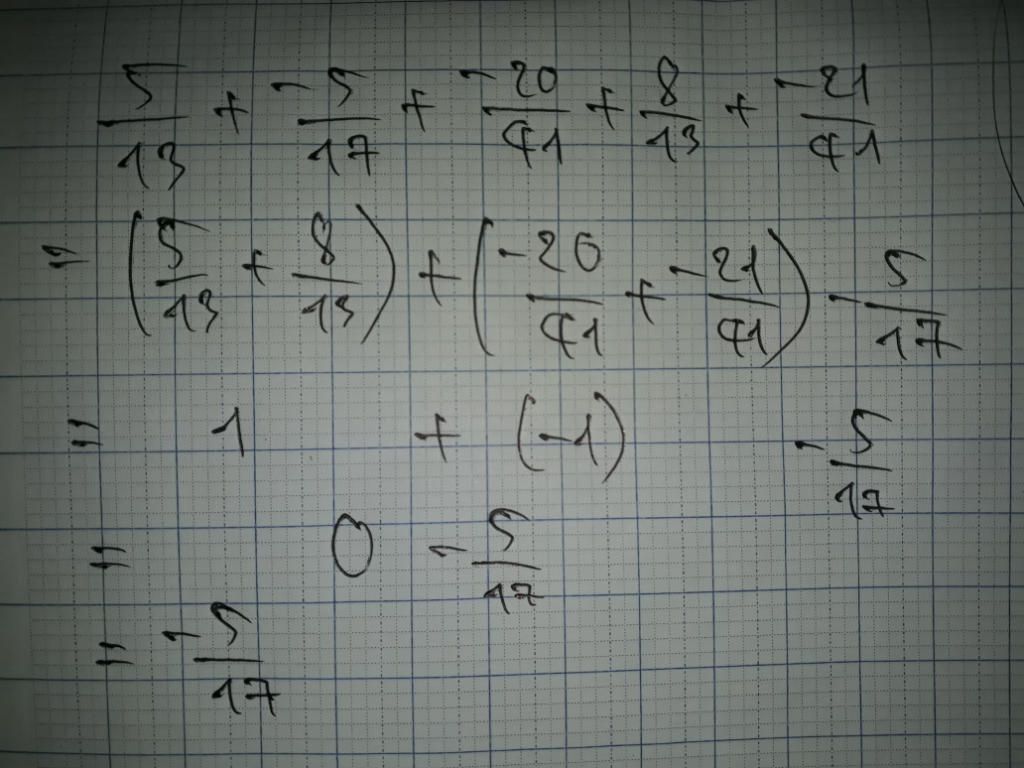 5/13 + -5/17 + -20/41 + 8/13 + -21/41
= (5/13 + 8/13) + (-20/41 + -21/41) - 5/17
= 1 + (-1) - 5/17
= 0 - 5/17
= -5/17